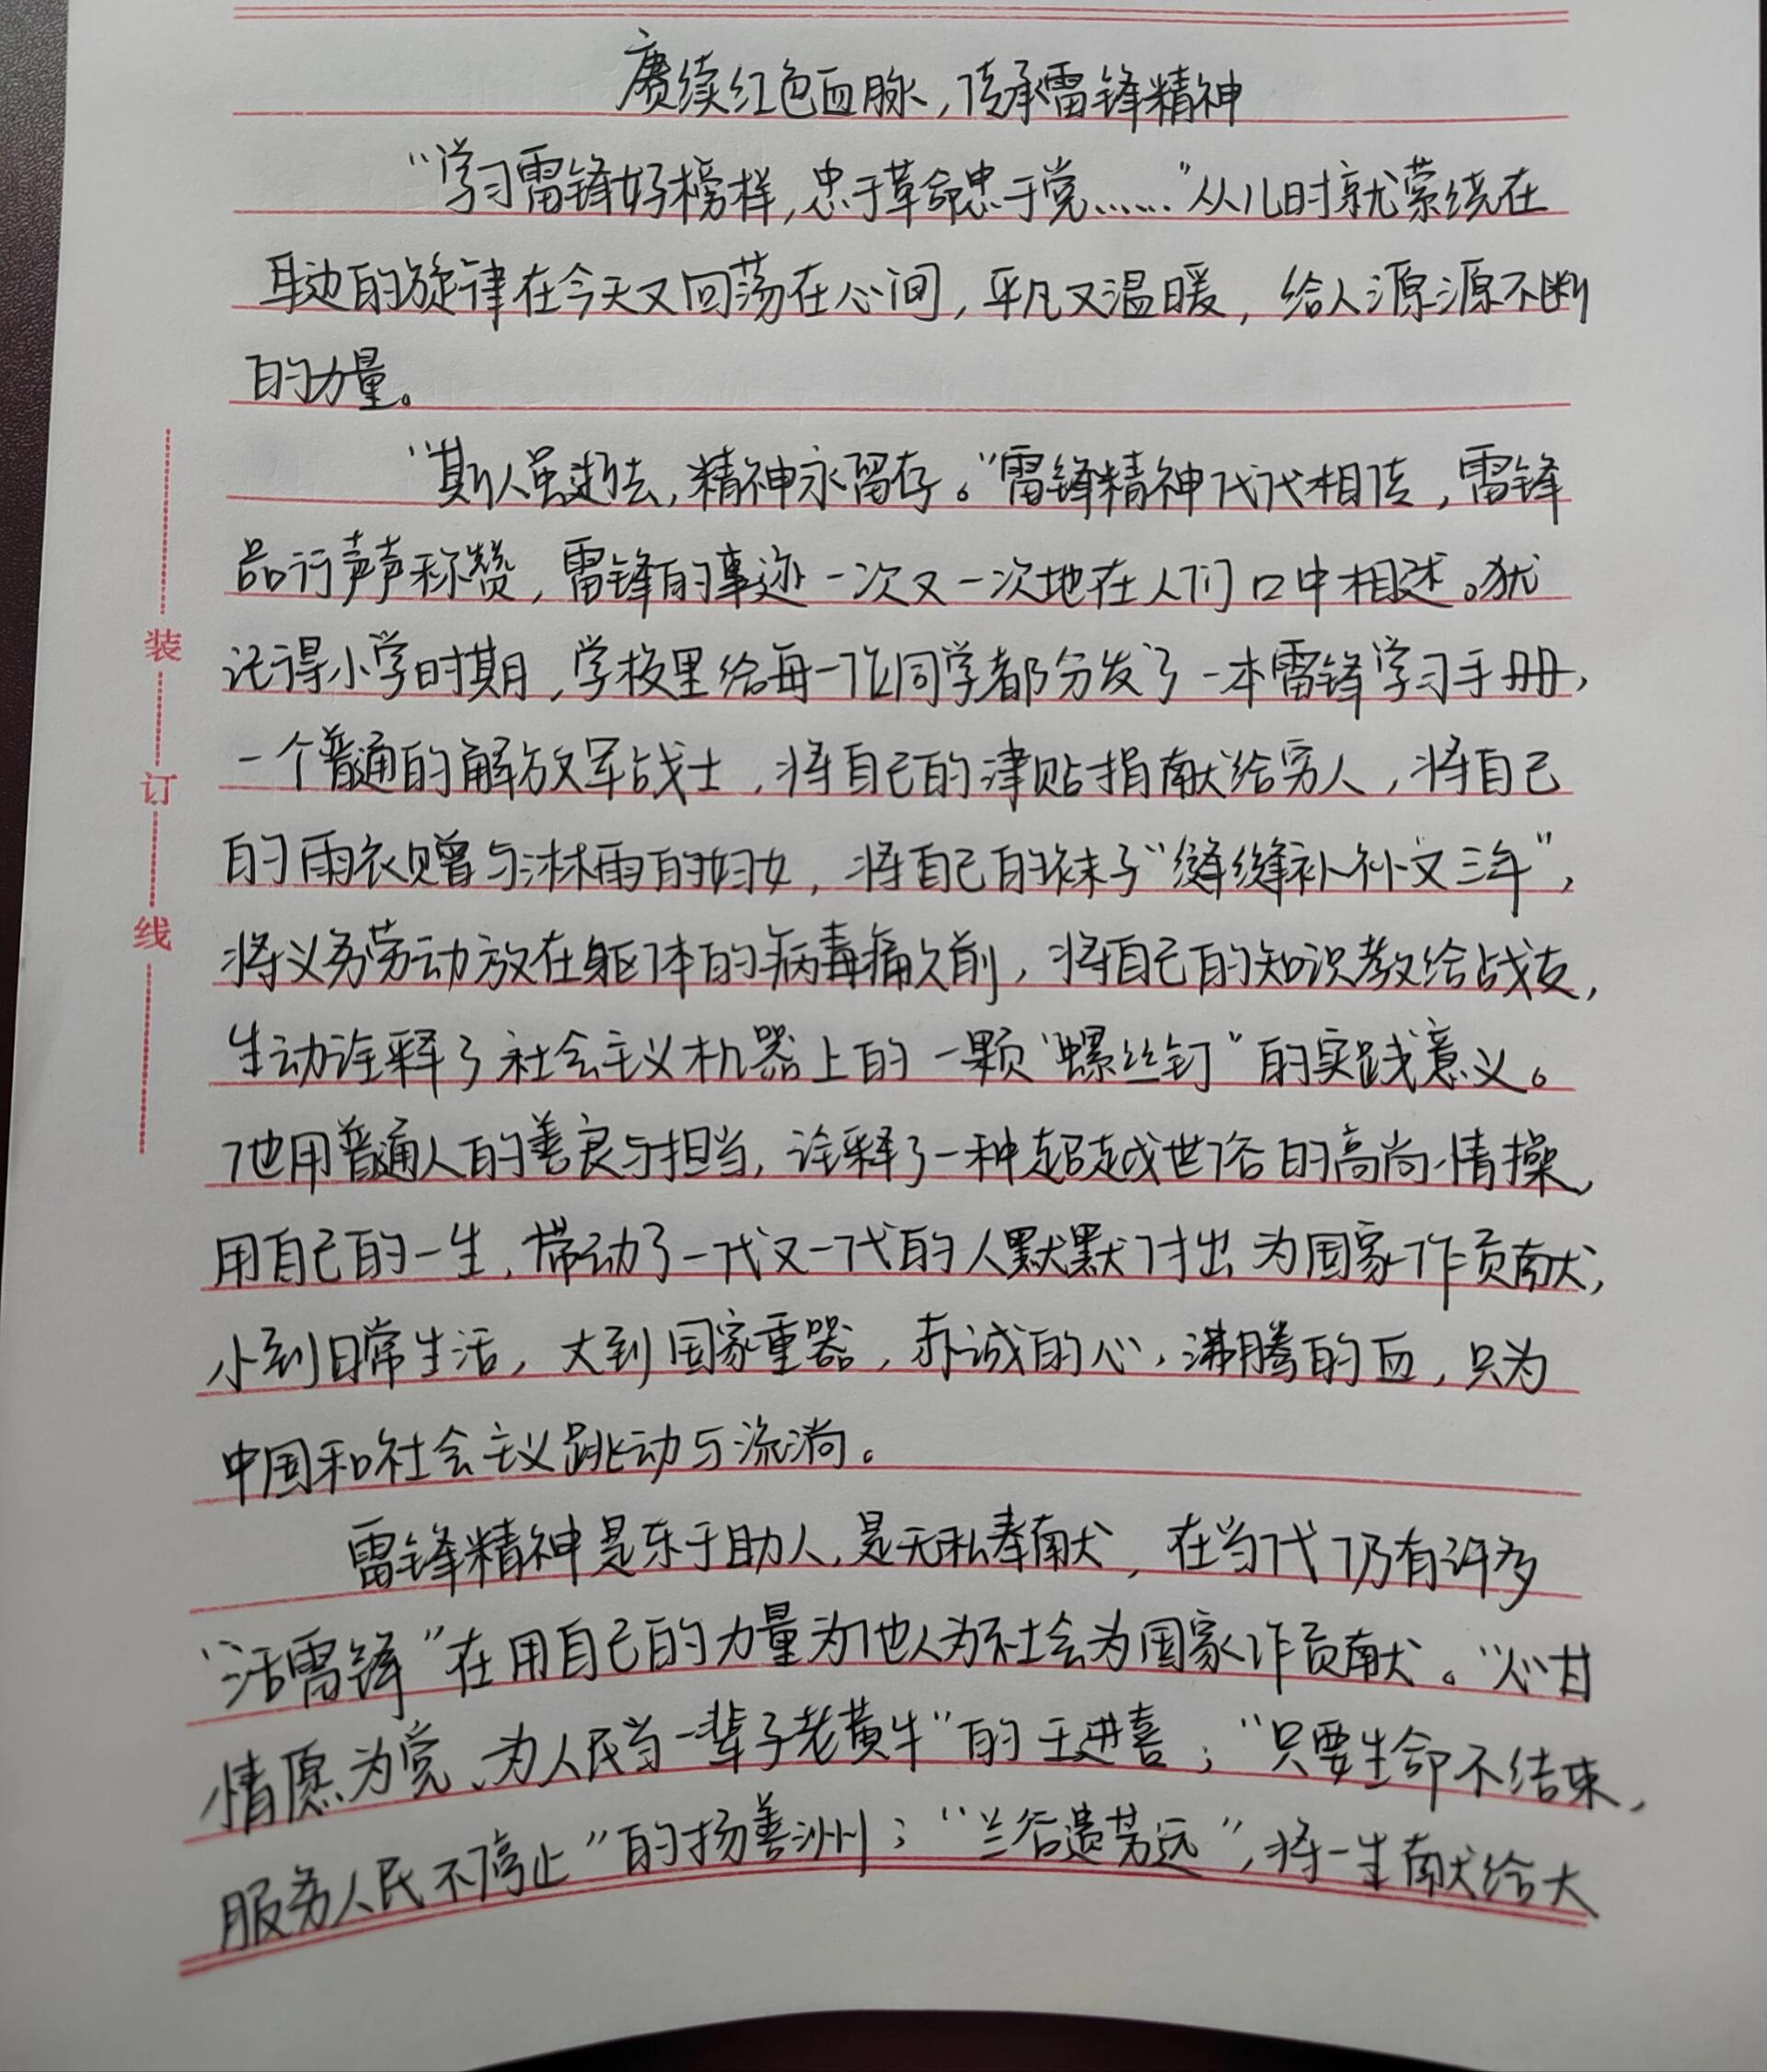 赓续红色血脉,传承雷锋精神
“学习雷锋好榜样,忠于革命忠于党……”从儿时就萦绕在
耳边的旋律在今天又回荡在心间,平凡又温暖,给人源源不断
的力量。
“斯人虽逝去,精神永留存。”雷锋精神代代相传,雷锋
品行声声称赞,雷锋的事迹一次又一次地在人们口中相述。犹
记得小学时期,学校里给每一位同学都分发了一本雷锋学习手册,
一个普通的解放军战士,将自己的津贴捐献给穷人,将自己
的雨衣赠与淋雨的妇女,将自己的袜子“缝缝补补又三年”,
将义务劳动放在躯体的病毒痛久前,将自己的知识教给战友,
生动诠释了社会主义机器上的一颗“螺丝钉”的实践意义。
他用普通人的善良与担当,诠释了一种超越世俗的高尚情操,
用自己的一生,带动了一代又一代的人默默付出为国家作贡献,
小到日常生活,大到国家重器,赤诚的心,沸腾的血,只为
中国和社会主义跳动与流淌。
雷锋精神是乐于助人,是无私奉献,在当代仍有许多
“活雷锋”在用自己的力量为他人为社会为国家作贡献。“心甘
情愿为党、为人民当一辈子老黄牛”的王进喜;“只要生命不结束,
服务人民不停止”的杨善洲;“兰谷遗芳远”,将一生献给大
装
订
线